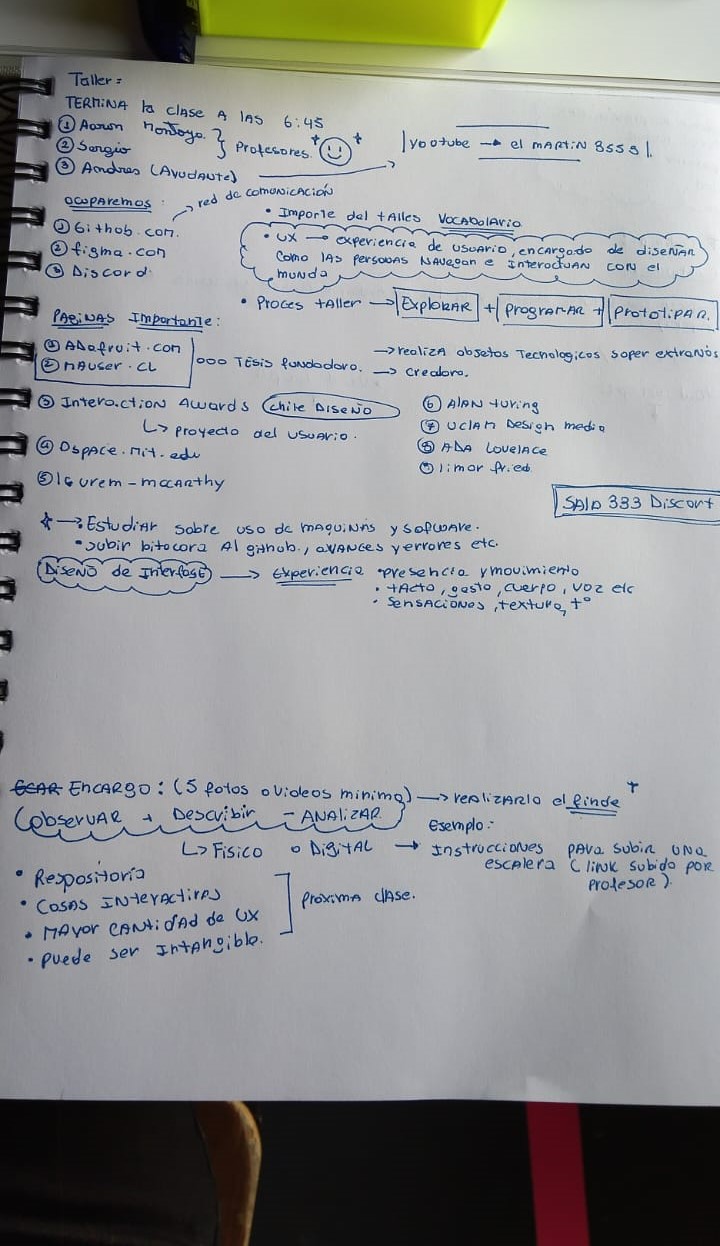 Taller:
TERMINA la clase A lAS 6:45
① Aaron Montoya.
② Sergio } Profesores.
③ Andres (AYUDANTE)
| Youtube → el MARTIN 8553 |.
OCUPAREMOS:
red de comunicación
① Github.com.
② figma.con
③ Discord.
• Importe del tAlles VOCABOlARIO
• UX → experiencia de usuario, encargado de diseñAR
como lAS personas NAvegan e Interactuan con el
mundo
• Proces tAller → ExplorAR + progrAMAR + prototipAR.
PAGINAS Importante:
① ADafruit.con
② MAuser.CL
ooo Tesis fundadora.
→ realiza objetos Tecnologicos soper extranos
→ creadora.
③ Interaction Awards chile DISEÑO
↳ proyecto del usuario.
④ Dspace.mit.edu
⑤ laurem-mccArthy
⑥ AlAN turing
⑦ UCLAN Design media
⑧ ADA Lovelace
⑨ limor fried
SAlA 383 Discort
☆ → Estudiar sobre uso de maquinas y sofware.
• subir bitacora Al github, avances y errores etc.
Diseño de Interfase → experiencia • presencia y movimiento
• tActo, gesto, cuerpo, voz etc
• sensaciones, textura, t°
ENCARGO: (5 fotos o videos minimo) → realizarlo el finde
(observAR + Describir - ANALIZAR
↳ Fisico o Digital → Instrucciones para subir una
Ejemplo:
escalera (link subido por
profesor).
• Respositorio
• COSAS INterActivas
• MAyor cantidad de UX
• puede ser Intangible.
próxima clase.